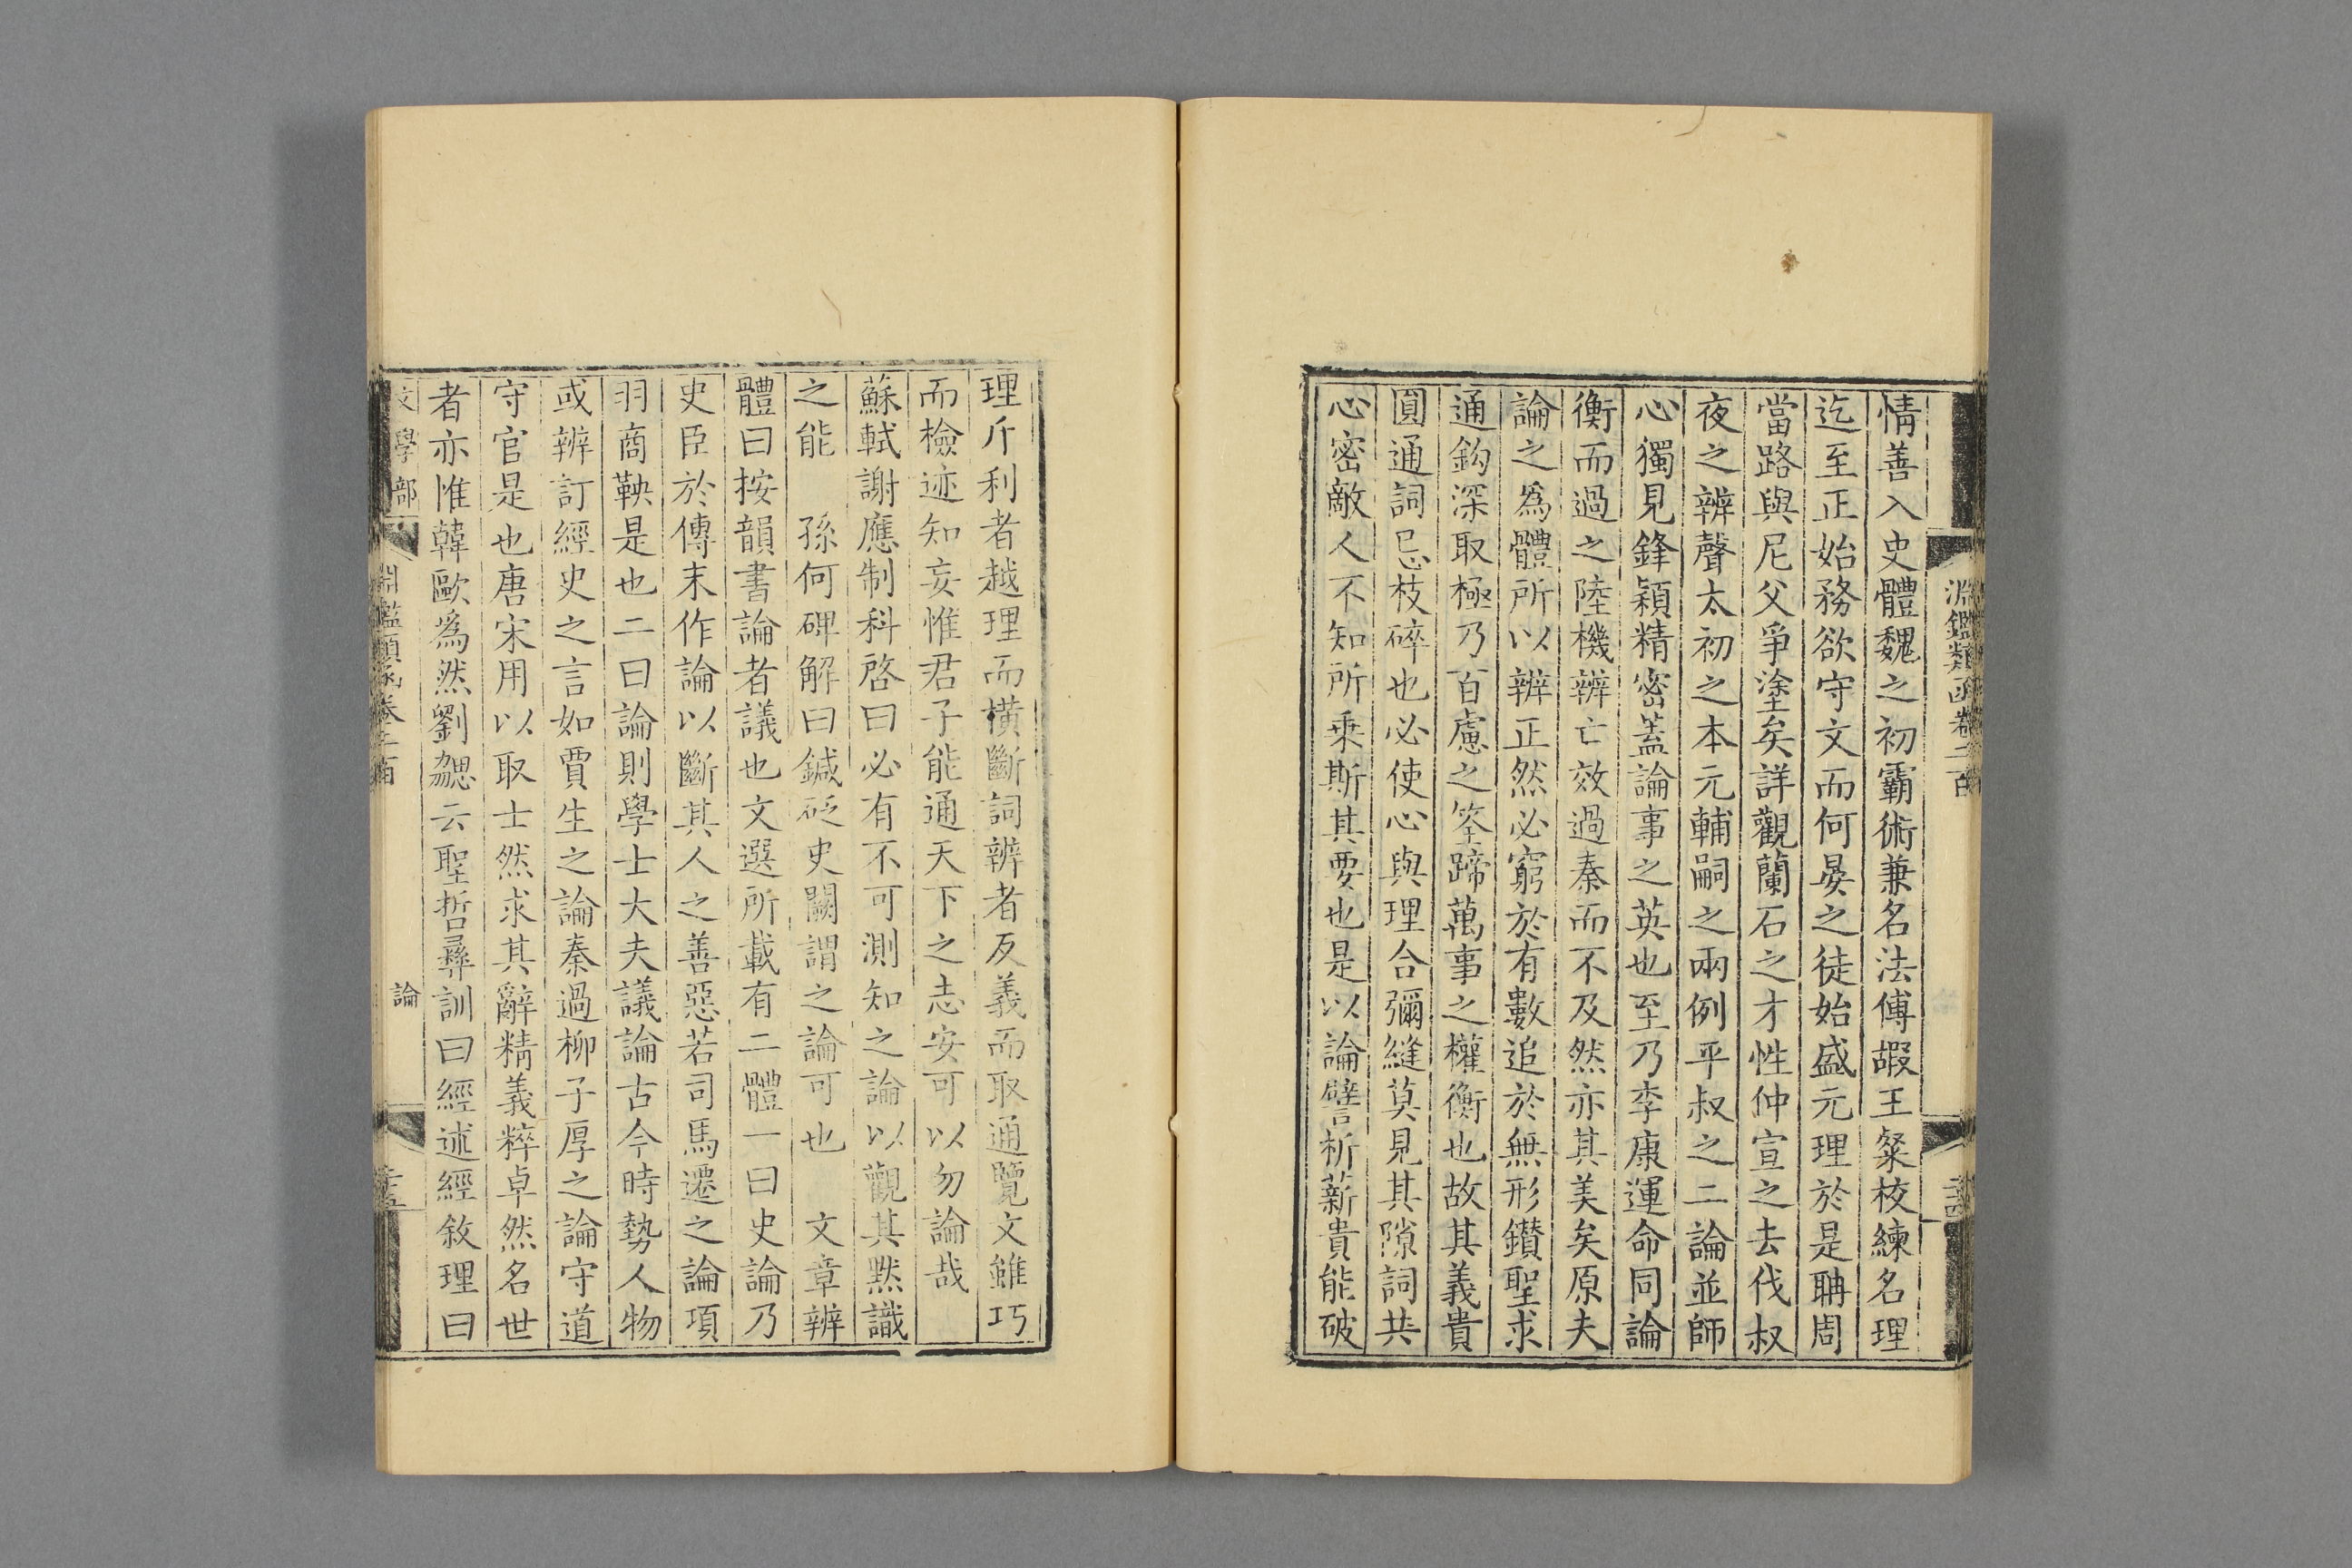 淵鑑類函卷二百
情善入史體魏之初霸術兼名法傅嘏王粲校練名理
迄至正始務欲守文而何晏之徒始盛元理於是聃周
當路與尼父爭塗矣詳觀蘭石之才性仲宣之去伐叔
夜之辨聲太初之本元輔嗣之兩例平叔之二論並師
心獨見鋒穎精密蓋論事之英也至乃李康運命同論
衡而過之陸機辨亡效過秦而不及然亦其美矣原夫
論之爲體所以辨正然必窮於有數追於無形鑚聖求
通鈎深取極乃百慮之筌蹄萬事之權衡也故其義貴
圓通詞忌枝碎也必使心與理合彌縫莫見其隙詞共
心密敵人不知所乗斯其要也是以論譬析薪貴能破
理斤利者越理而橫斷詞辨者反義而取通覽文雖巧
而檢迹知妄惟君子能通天下之志安可以勿論哉
蘇軾謝應制科啓曰必有不可測知之論以觀其黙識
之能　孫何碑解曰鍼砭史闕謂之論可也　文章辨
體曰按韻書論者議也文選所載有二體一曰史論乃
史臣於傳末作論以斷其人之善惡若司馬遷之論項
羽商鞅是也二曰論則學士大夫議論古今時勢人物
或辨訂經史之言如賈生之論秦過柳子厚之論守道
守官是也唐宋用以取士然求其辭精義粹卓然名世
者亦惟韓歐爲然劉勰云聖哲彝訓曰經述經敘理曰
文學部
淵鑑類函卷二百
論